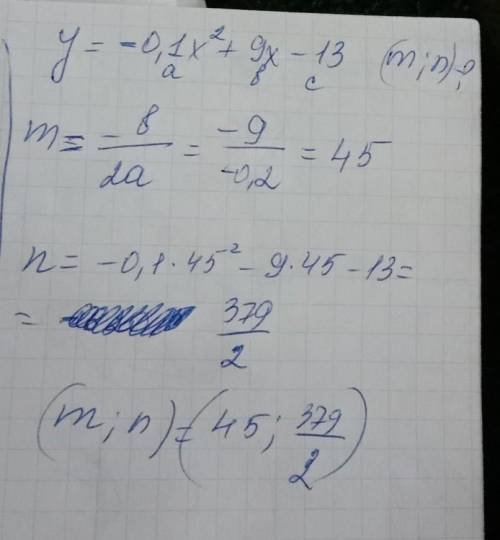 y = -0,1x² + 9x - 13 (m;n)-?
a в c
m = -в/2a = -9/-0,2 = 45
n = -0,1·45² - 9·45 - 13 =
= 379/2
(m;n) = (45; 379/2)